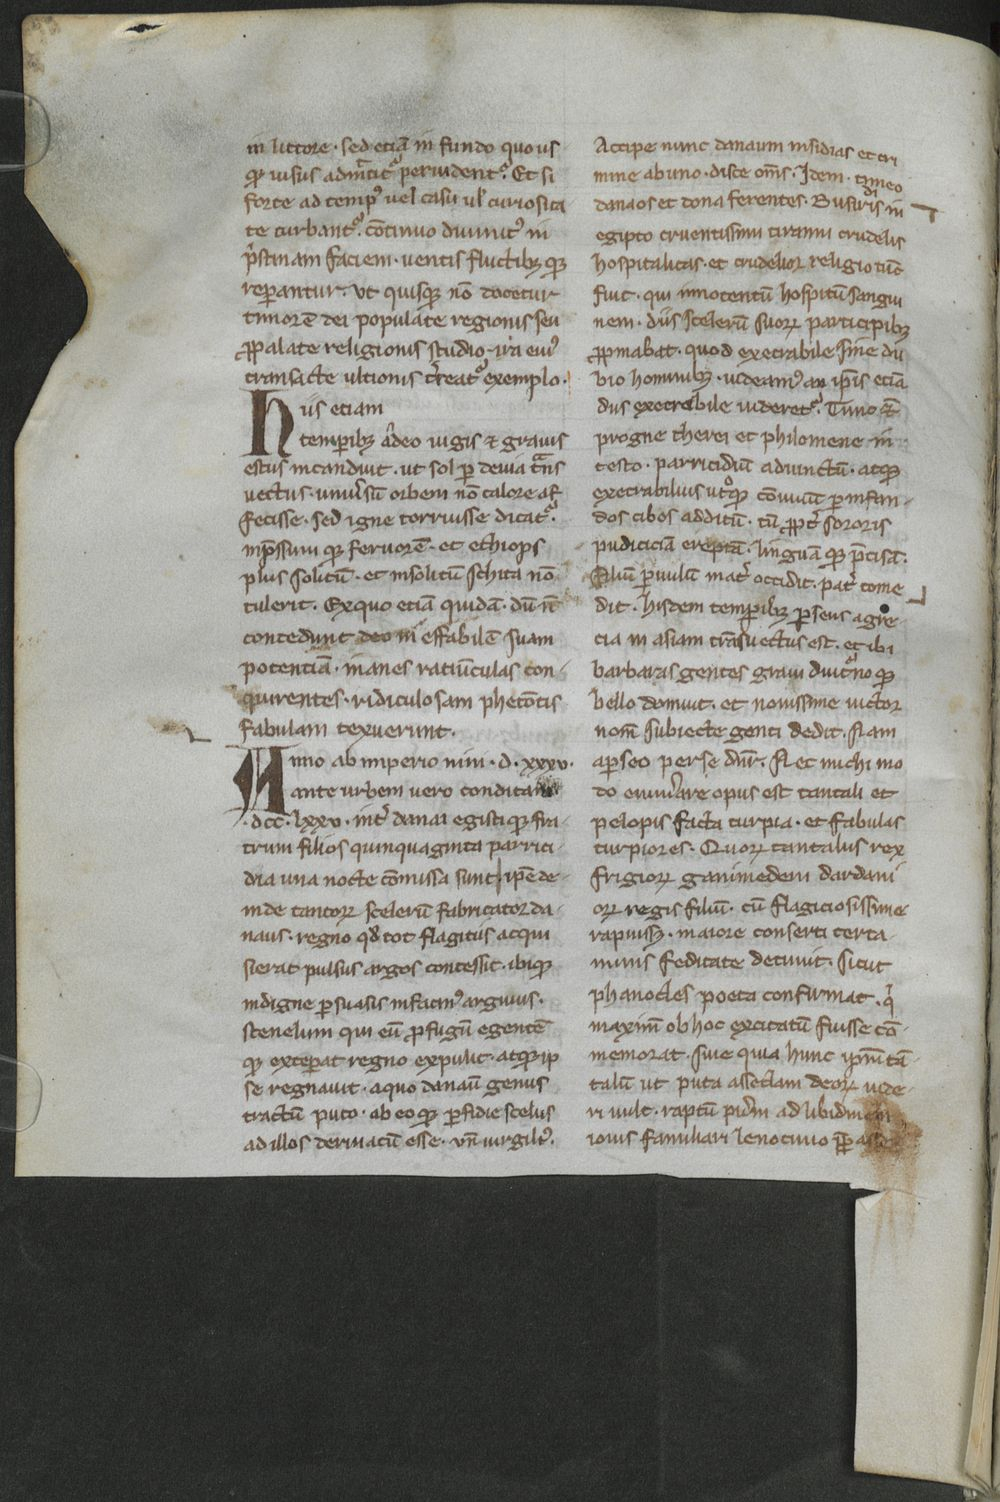 in littore · sed etiā in fundo quo us
qꝫ uisus admittitᷣ peruidentᷣ. Et si
forte ad tempꝰ uel casu ul' curiosita
te turbantᷣ. cōtinuo diuinitꝰ in
p̓stinam faciem · uentis fluctibꝫ qꝫ
reꝑantur. Vt quisqꝫ nō docetur
timorē dei populate regionis seu
ꝓpalate religionis studio · ira eiuꝰ
transacte ultionis t̓reatᷣ exemplo.
Hiis etiam
temꝑibꝫ adeo iugis ⁊ grauis
estus incanduit · ut sol ꝑ deuia tͣns
uectus · uniu̓sū orbem nō calore af
fecisse · sed igne torruisse dicatᷣ.
inp̄ssum qꝫ feruorē · et ethiops
plus solitū · et insolitū schita nō
tulerit. Ex quo etiā quidā · dū n̄
concedunt deo in effabilē suam
potentiā · inanes ratiūculas con-
quirentes · ridiculosam phetōtis
fabulam texuerunt.
Anno ab imperio nini · d · xxxv ·
ante urbem uero conditam
· dcc · lxxv · int̓ danai egistiqꝫ fra
trum filios quinquaginta parrici-
dia una nocte cōmissa sunt ip̄e de-
inde tantoꝝ scelerū fabricator da-
naus · regno qd̓ tot flagitiis acqui
sierat pulsus argos concessit · ibiqꝫ
indigne ꝑsuasis in facinꝰ argiuis ·
stenelum qui eū ꝓfugū egentē
qꝫ exceꝑat regno expulit · atqꝫ ip
se regnauit · a quo danaū genus
tractū puto · ab eo qꝫ ꝑfidie scelus
ad illos deriuatū esse · vn̄ uirgiliꝰ.
Accipe nunc danaum insidias et cri
mine ab uno · disce om̄s · Idem · timeo
danaos et dona ferentes · Busiridis in
egipto cruentissimi tiranni crudelis
hospitalitas · et crudelior religio tūc
fuit · qui innocentū hospitū sangui
nem · diis scelerū suoꝝ participibꝫ
ꝓpinabat · quod execrabile sine du
bio hominibꝫ · uideamꝰ an ip̄is etiā
diis execrabile uideretᷣ. Tunc ⁊
progne therei et philomene in-
cesto · parricidiū adiunctū · atqꝫ
execrabilius utͦqꝫ cōuiuiū ꝑ infan-
dos cibos additū · tū ꝓpt̓ sororis
pudiciciā ereptā · linguā qꝫ p̄cisā ·
filiū ꝑuulū mat̓ occidit · pat̓ come
dit · hisdem temꝑibꝫ ꝑseus a gre-
cia in asiam trāsuectus est · et ibi
barbaras gentes graui diuturno qꝫ
bello domuit · et nouissime uictor
nom̄ subiecte genti dedit · Nam
a ꝑseo perse dn̄r. Nec michi mo
do enum̓are opus est tantali et
pelopis facta turpia · et fabulas
turpiores · Quoꝝ tantalus rex
frigioꝝ ganimedem dardani
oꝝ regis filiū · cū flagiciosissime
rapuissꝫ · maiore conserti certa-
minis feditate detinuit · sicut
phanocles poeta confirmat · q̓
maxim̄ ob hoc excitatū fuisse cō-
memorat · siue quia hunc ip̄m tā-
talū ut puta asseclam deoꝝ uide-
ri uult · raptū pu̓m ad libidinem
iouis familiari lenocinio